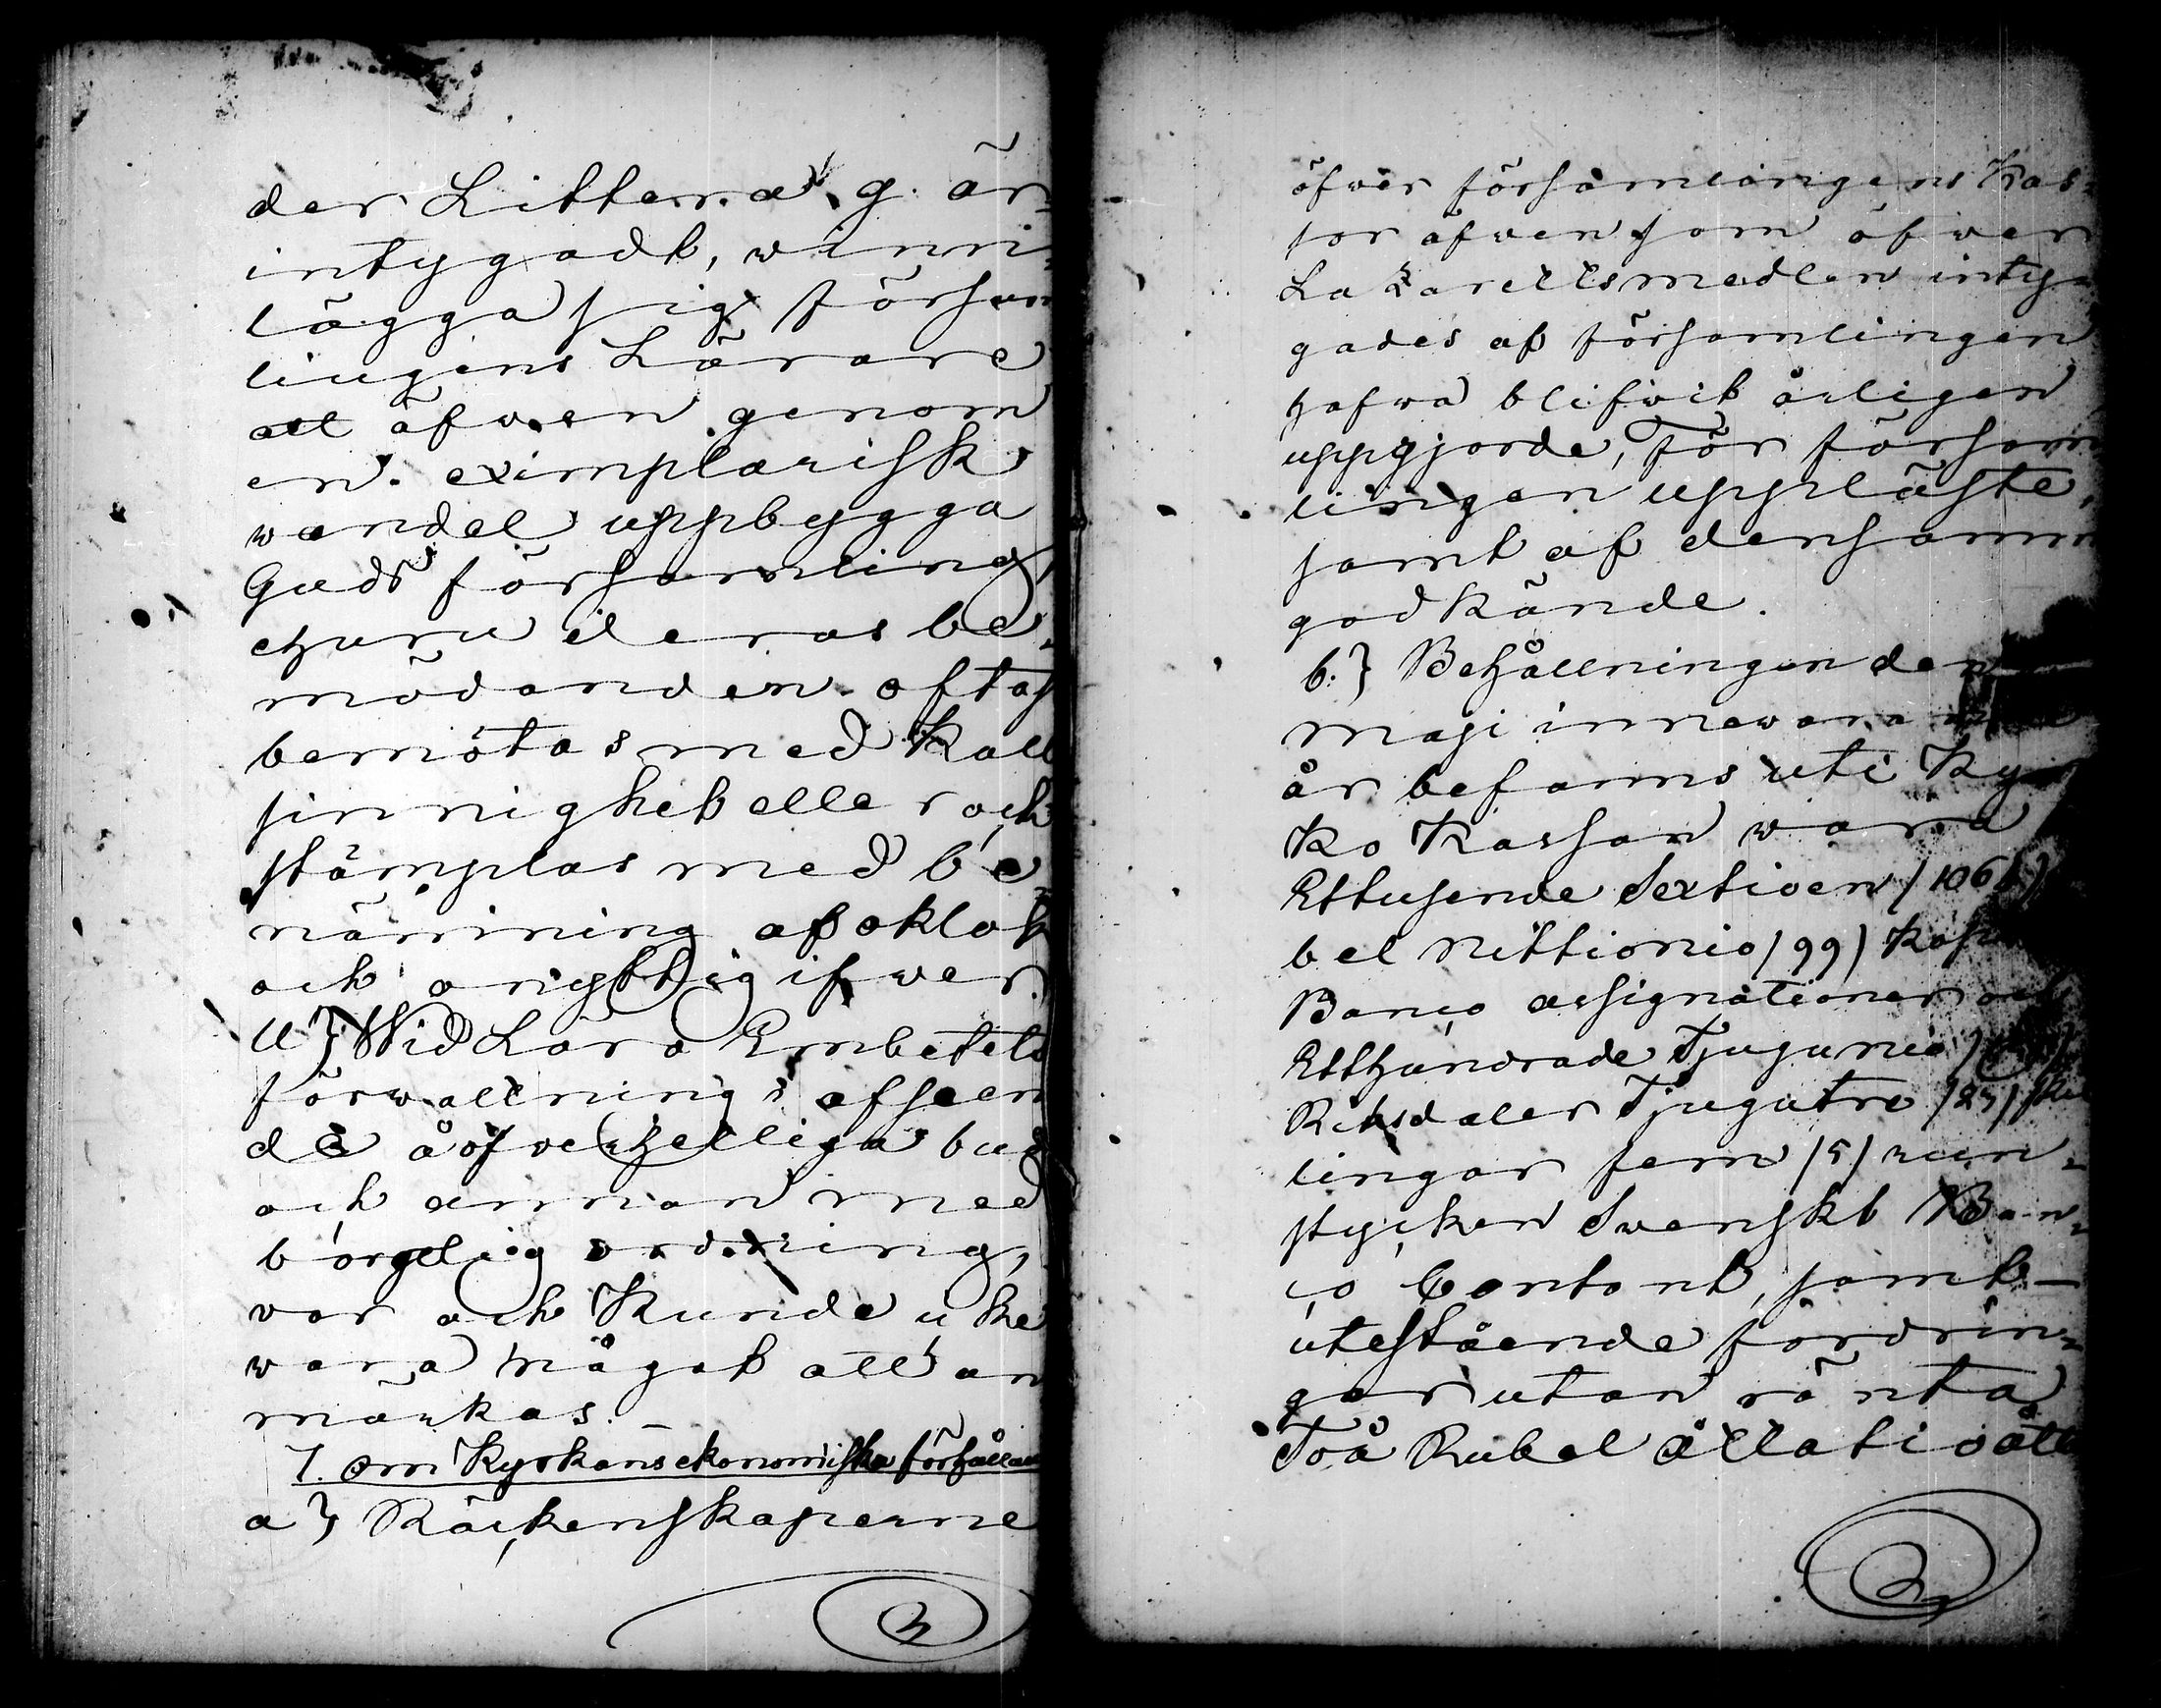 der Littera g. är
intygadt, vinn-
lägga sig försam
lingens Lärare
att äfwen genom
en exemplarisk
wandel uppbygga
Guds församling,
ehuru deras be-
mödanden oftast
bemötas med Kall
sinnighet eller och
stämplas med be-
nämning af oklok
och onyttig ifwer.
ll} Wid Lära Embetets
förwaltning i afseen
de å öfwerhetliga bud
och annan med
borgelig ordning,
var och Kunde icke
wara något att an
märkas. –
7. om Kyrkans ekonomiska förhållan
a} Räckenskaperne
öfwer församlingens Kas-
sor äfwensom öfwer
Lazarettsmedlen inty-
gades af församlingen
hafwa blifwit årligen
uppgjorde, för försam
lingen uppläste,
samt af densamm
godkände.
b.} Behållningen den
maji innewara
år befanns uti Ky
ko Kassan wara
Ettusende Sextioen /1061/
bel Nittionio /99/ Kop
Banco assignationer och
Etthundrade Tjugunio
Riksdaler Tjugutre /23/ skil
lingar fem /5/ run-
stycken Svenskt Ban-
co Contant, samt –
utestående fordrin-
gar utan ränta
Två Rubel Åttatioått